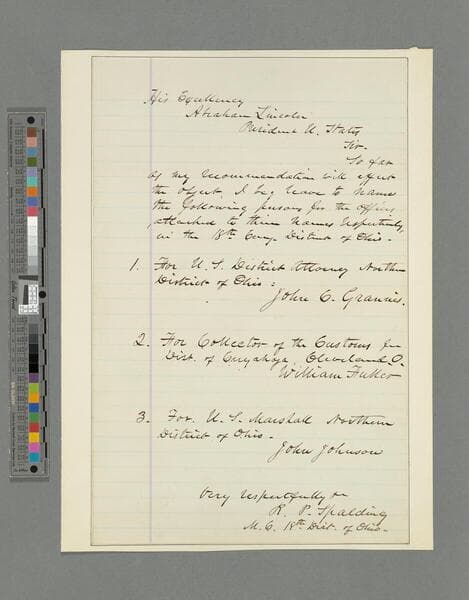 His Excellency
Abraham Lincoln
President U. States
Sir.
So far
as my recommendation will effect
the object, I beg leave to name
the following persons for the offices
attached to their names respectively,
in the 18th Cong. District of Ohio -
1. For U. S. District Attorney Northern
District of Ohio:
John C. Grannis.
2. For Collector of the Customs for
Dist. of Cuyahoga, Cleveland O.
William Fuller
3. For U. S. Marshall Northern
District of Ohio -
John Johnson
Very respectfully
R. P. Spalding
M. C. 18th Dist. of Ohio -